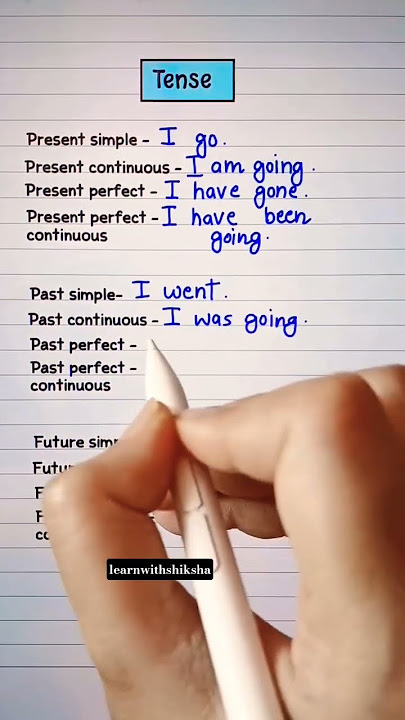 Tense
Present simple - I go.
Present continuous - I am going.
Present perfect - I have gone.
Present perfect - I have been
continuous going.
Past simple- I went.
Past continuous - I was going.
Past perfect -
Past perfect -
continuous
Future
learnwithshiksha